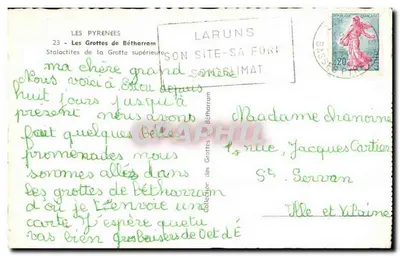 LES PYRENEES
23 - Les Grottes de Bétharram
Stalactites de la Grotte supérieure
LARUNS
SON SITE - SA FORÊT
SON CLIMAT
0,20
ma chère grand mère
Nous voici à depuis
huit jours jusqu'à
présent nous avons
fait quelques belles
promenades nous
sommes allés dans
les grottes de bétharram
d'où je t'envoie une
carte J'espère que tu
vas bien gros baisers de O et d É
Collection des Grottes de Bétharram
Madame Chanoine
rue, Jacques Cartier
St Servan
Ille et Vilaine